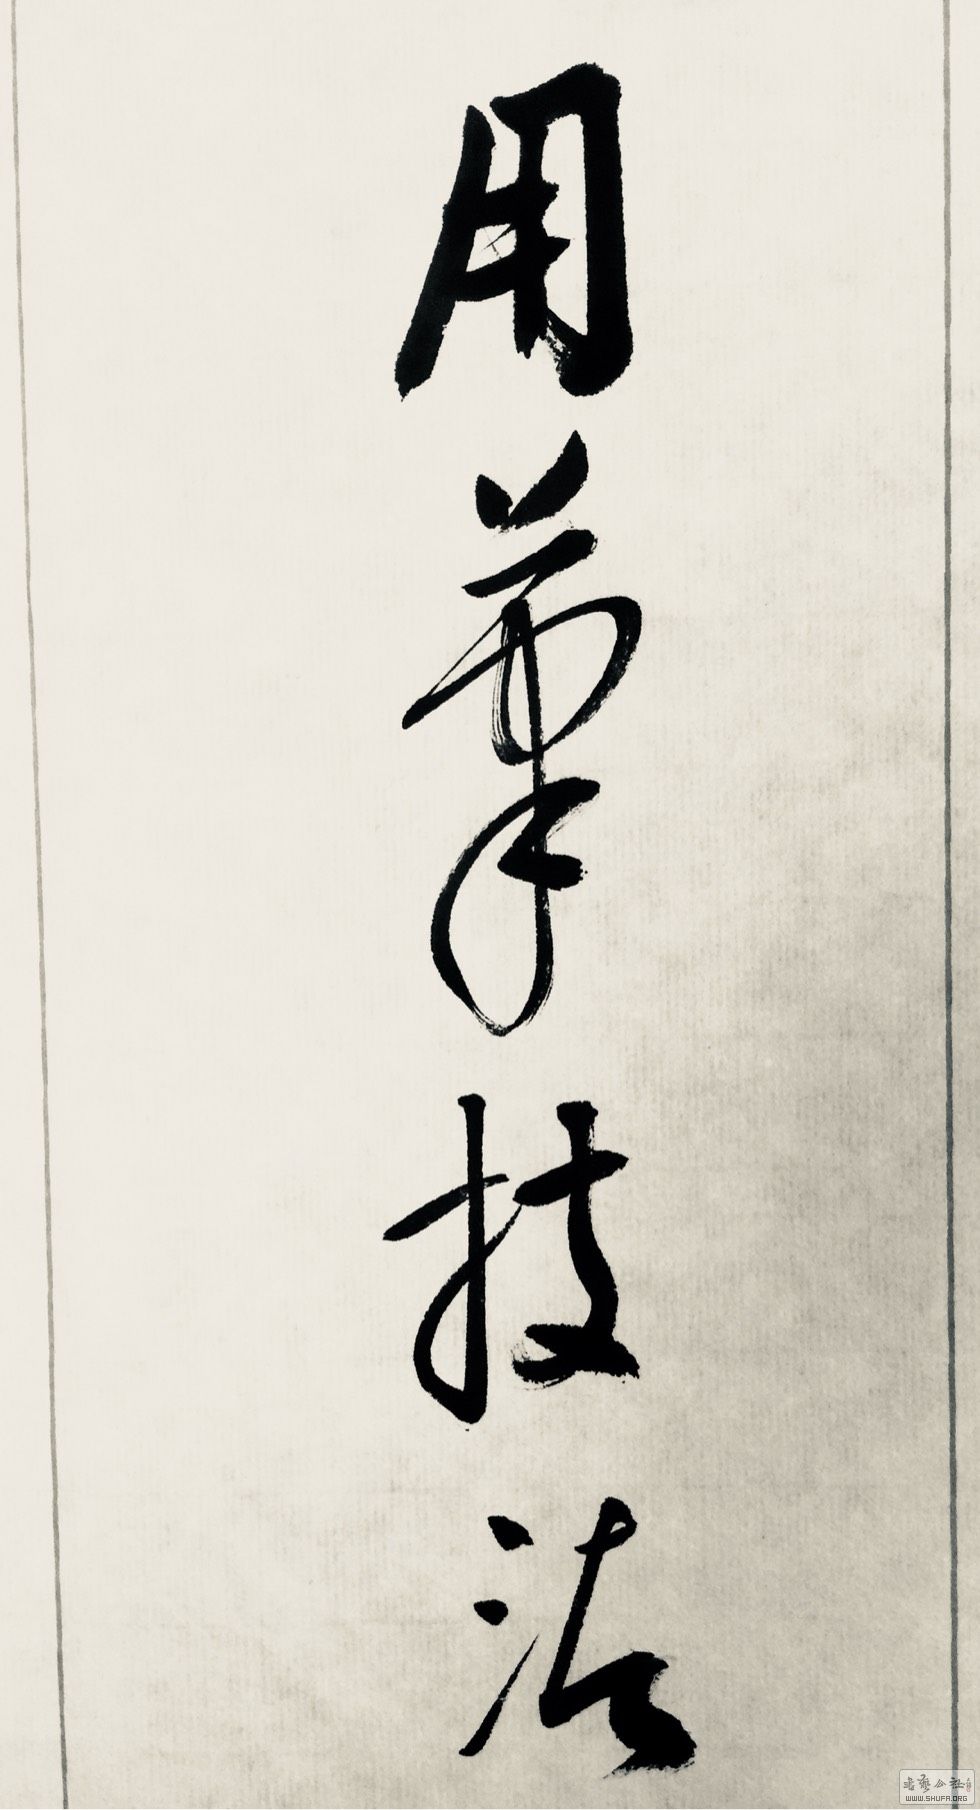 用筆技法
書藝公社
WWW.SHUFA.ORG